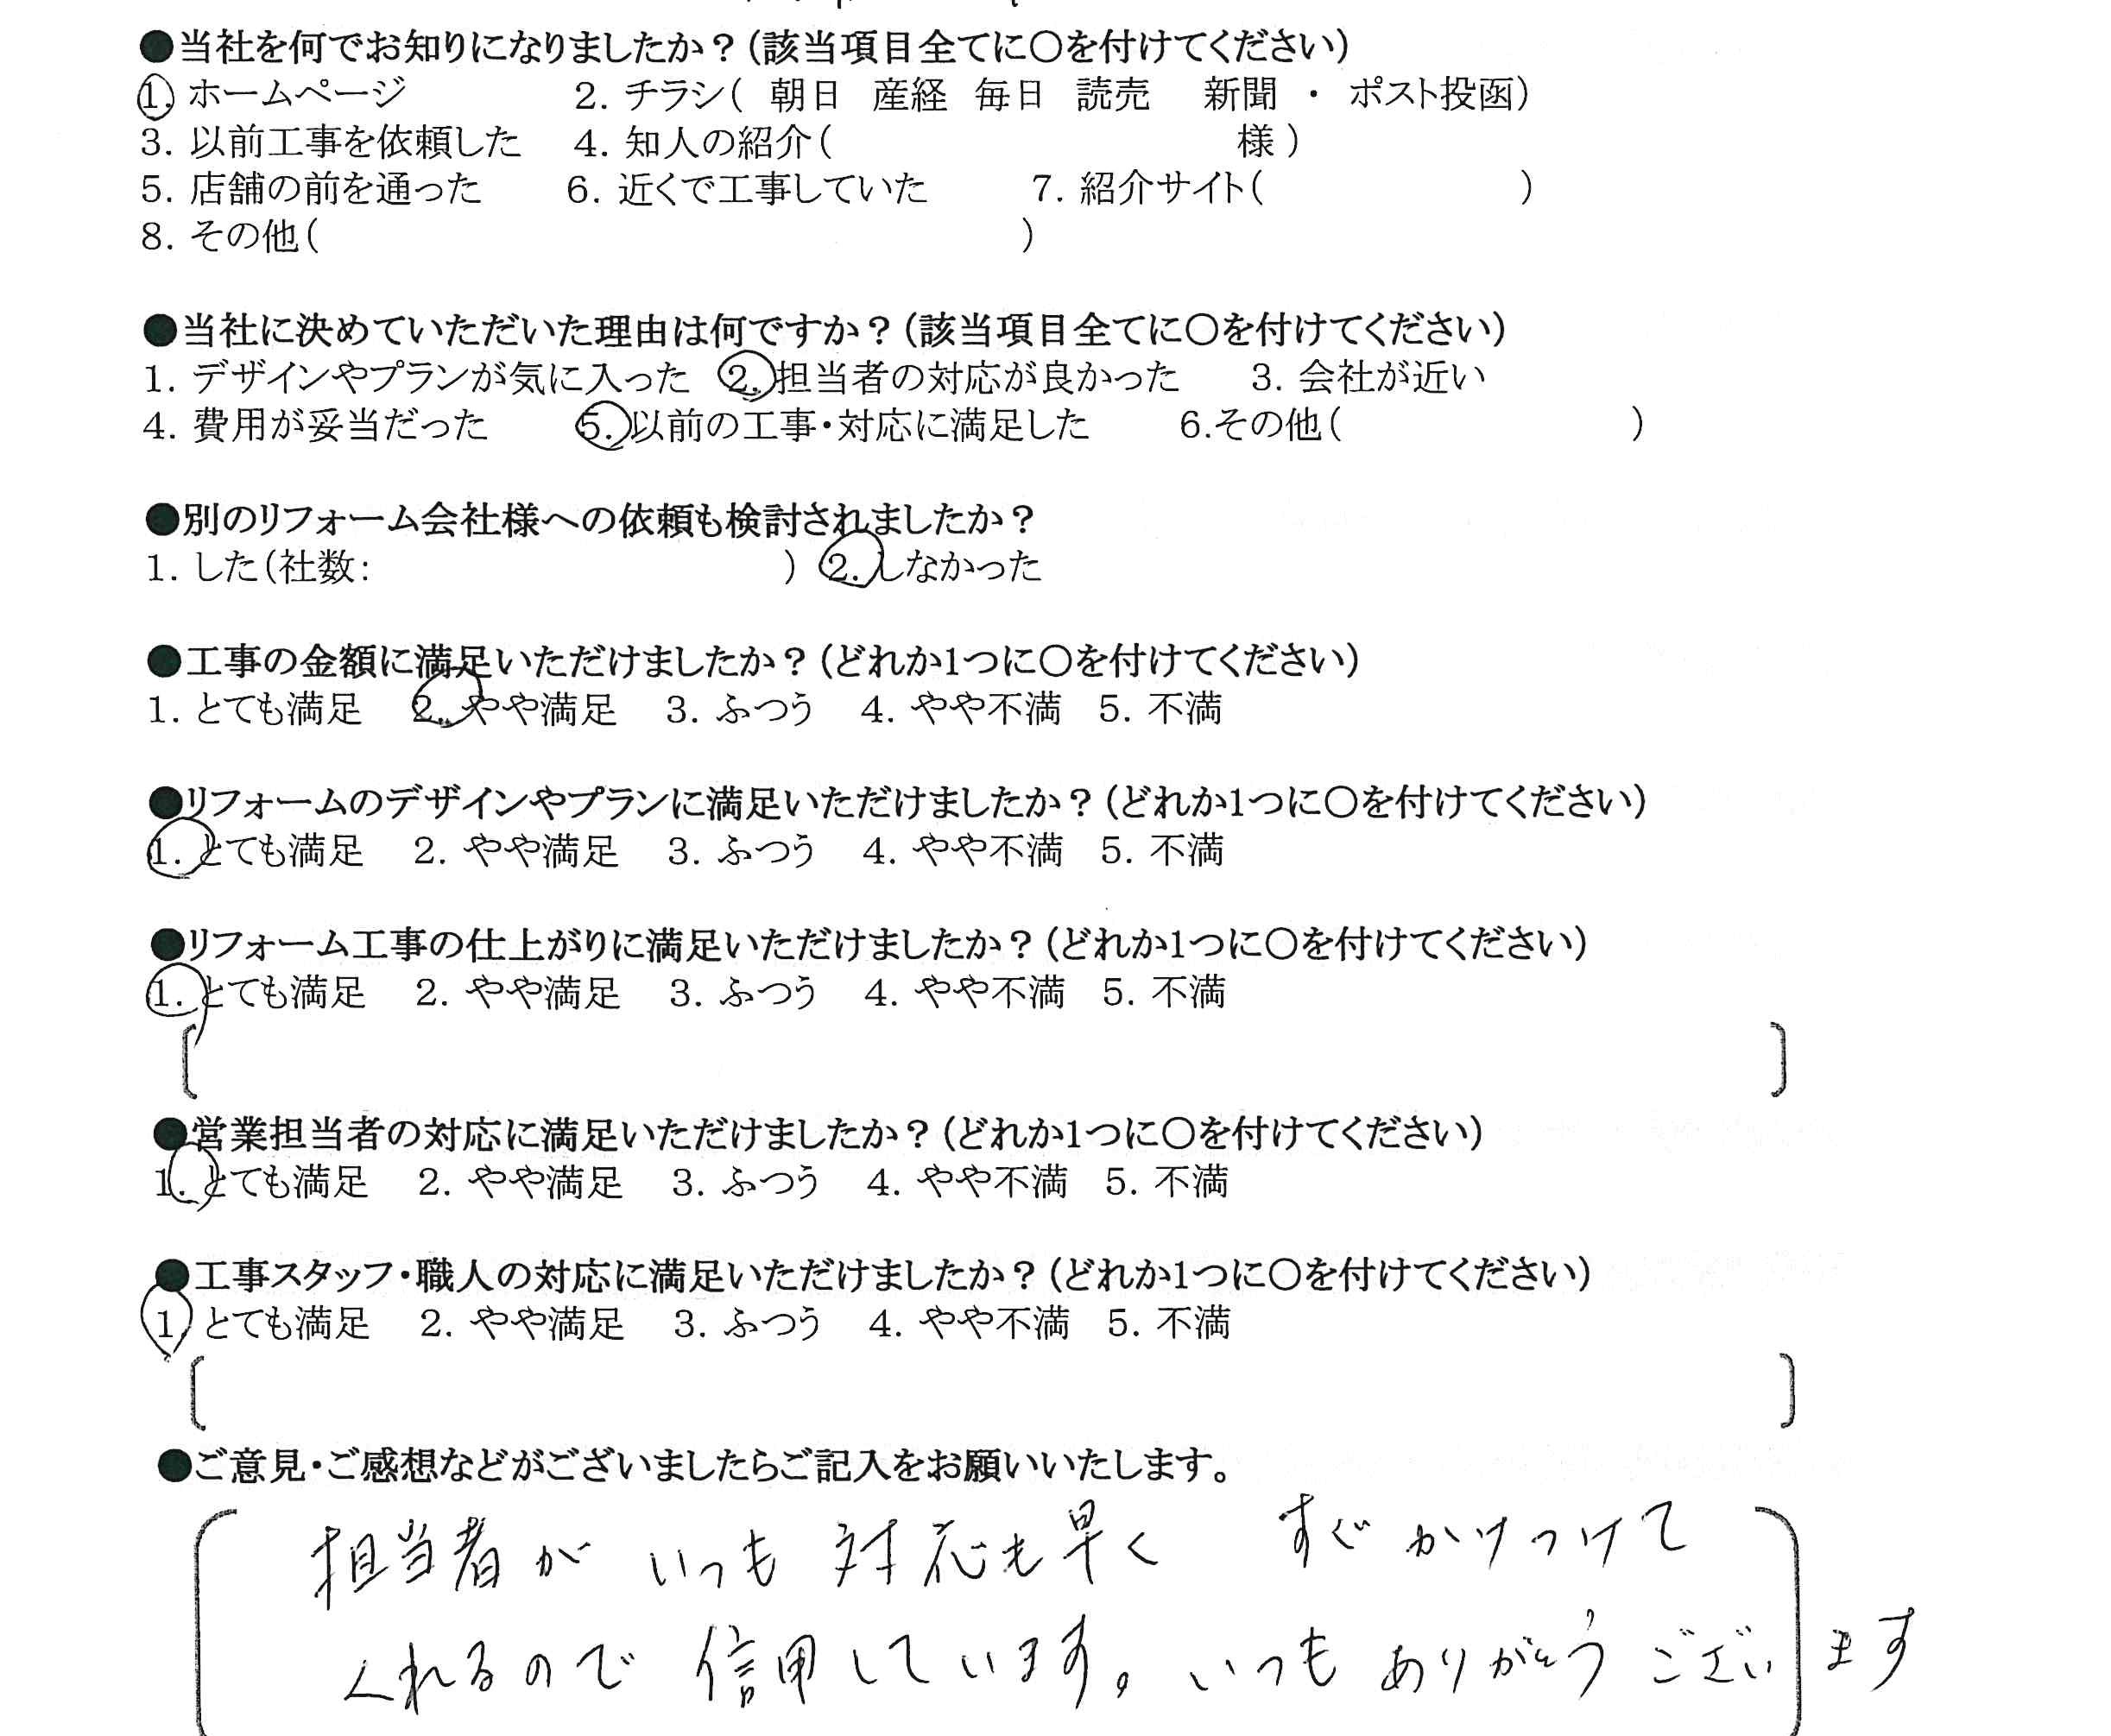 ●当社を何でお知りになりましたか？(該当項目全てに○を付けてください)
1. ホームページ 2. チラシ( 朝日 産経 毎日 読売 新聞 ・ ポスト投函)
3. 以前工事を依頼した 4. 知人の紹介( 様)
5. 店舗の前を通った 6. 近くで工事していた 7. 紹介サイト( )
8. その他( )
●当社に決めていただいた理由は何ですか？(該当項目全てに○を付けてください)
1. デザインやプランが気に入った 2. 担当者の対応が良かった 3. 会社が近い
4. 費用が妥当だった 5. 以前の工事・対応に満足した 6.その他( )
●別のリフォーム会社様への依頼も検討されましたか？
1. した(社数: ) 2. しなかった
●工事の金額に満足いただけましたか？(どれか1つに○を付けてください)
1. とても満足 2. やや満足 3. ふつう 4. やや不満 5. 不満
●リフォームのデザインやプランに満足いただけましたか？(どれか1つに○を付けてください)
1. とても満足 2. やや満足 3. ふつう 4. やや不満 5. 不満
●リフォーム工事の仕上がりに満足いただけましたか？(どれか1つに○を付けてください)
1. とても満足 2. やや満足 3. ふつう 4. やや不満 5. 不満
●営業担当者の対応に満足いただけましたか？(どれか1つに○を付けてください)
1. とても満足 2. やや満足 3. ふつう 4. やや不満 5. 不満
●工事スタッフ・職人の対応に満足いただけましたか？(どれか1つに○を付けてください)
1. とても満足 2. やや満足 3. ふつう 4. やや不満 5. 不満
●ご意見・ご感想などがございましたらご記入をお願いいたします。
担当者が いつも 対応も早く すぐ かけつけて
くれるので 信用しています。いつも ありがとう ございます